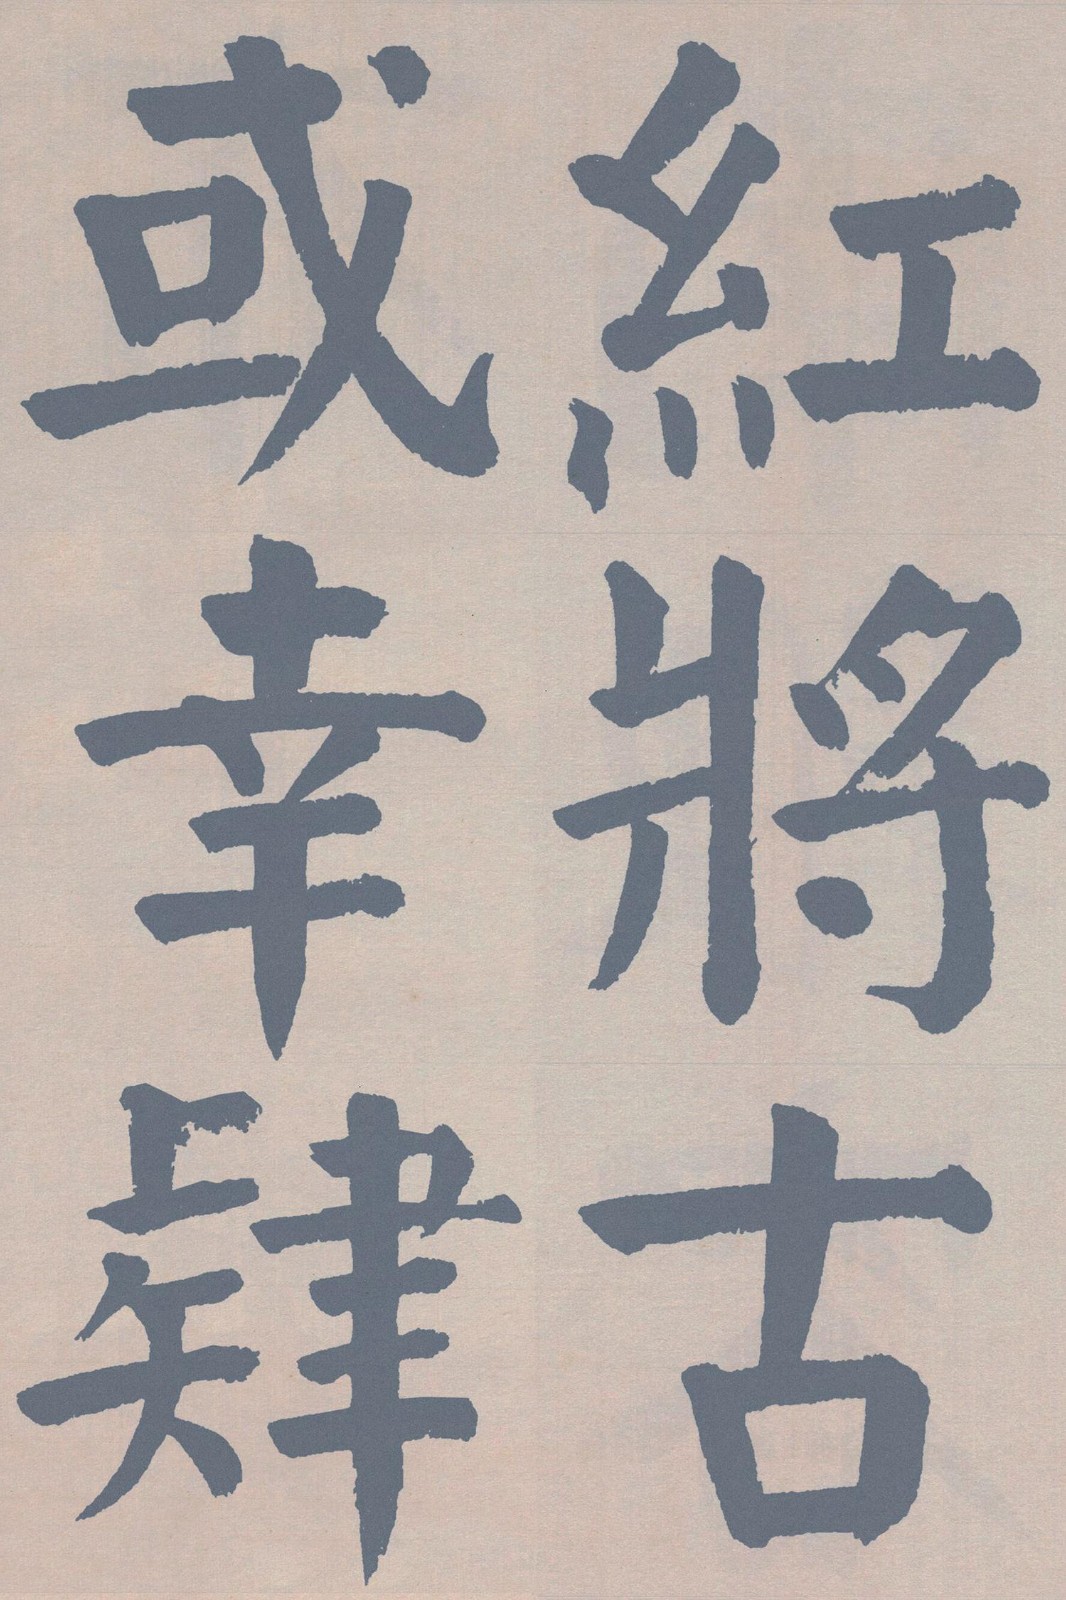 紅將古
或幸肆